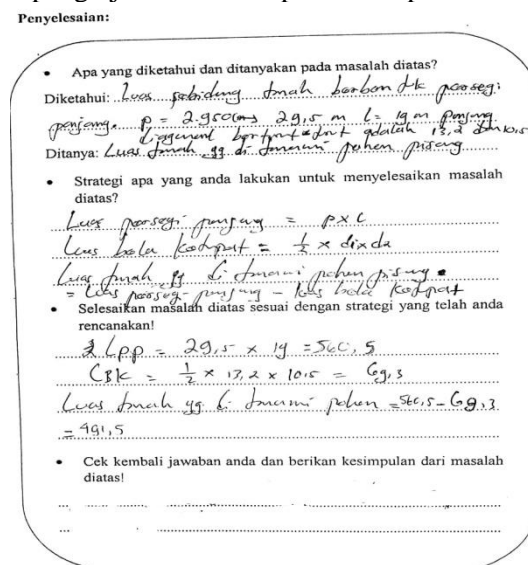 Penyelesaian:
• Apa yang diketahui dan ditanyakan pada masalah diatas?
Diketahui: Luas sebidang tanah berbentuk persegi
panjang. p = 2.950 cm 29,5 m l = 19 m panjang
diagonal adalah 13,2 dan 10,5
Ditanya: Luas tanah yg di tanami pohon pisang
• Strategi apa yang anda lakukan untuk menyelesaikan masalah
diatas?
Luas persegi panjang = p x l
Luas belah ketupat = 1/2 x d1 x d2
Luas tanah yg di tanami pohon pisang
= Luas persegi panjang - luas belah ketupat
• Selesaikan masalah diatas sesuai dengan strategi yang telah anda
rencanakan!
Lpp = 29,5 x 19 = 560,5
LBK = 1/2 x 13,2 x 10,5 = 69,3
Luas tanah yg di tanami pohon = 560,5 - 69,3
= 491,5
• Cek kembali jawaban anda dan berikan kesimpulan dari masalah
diatas!